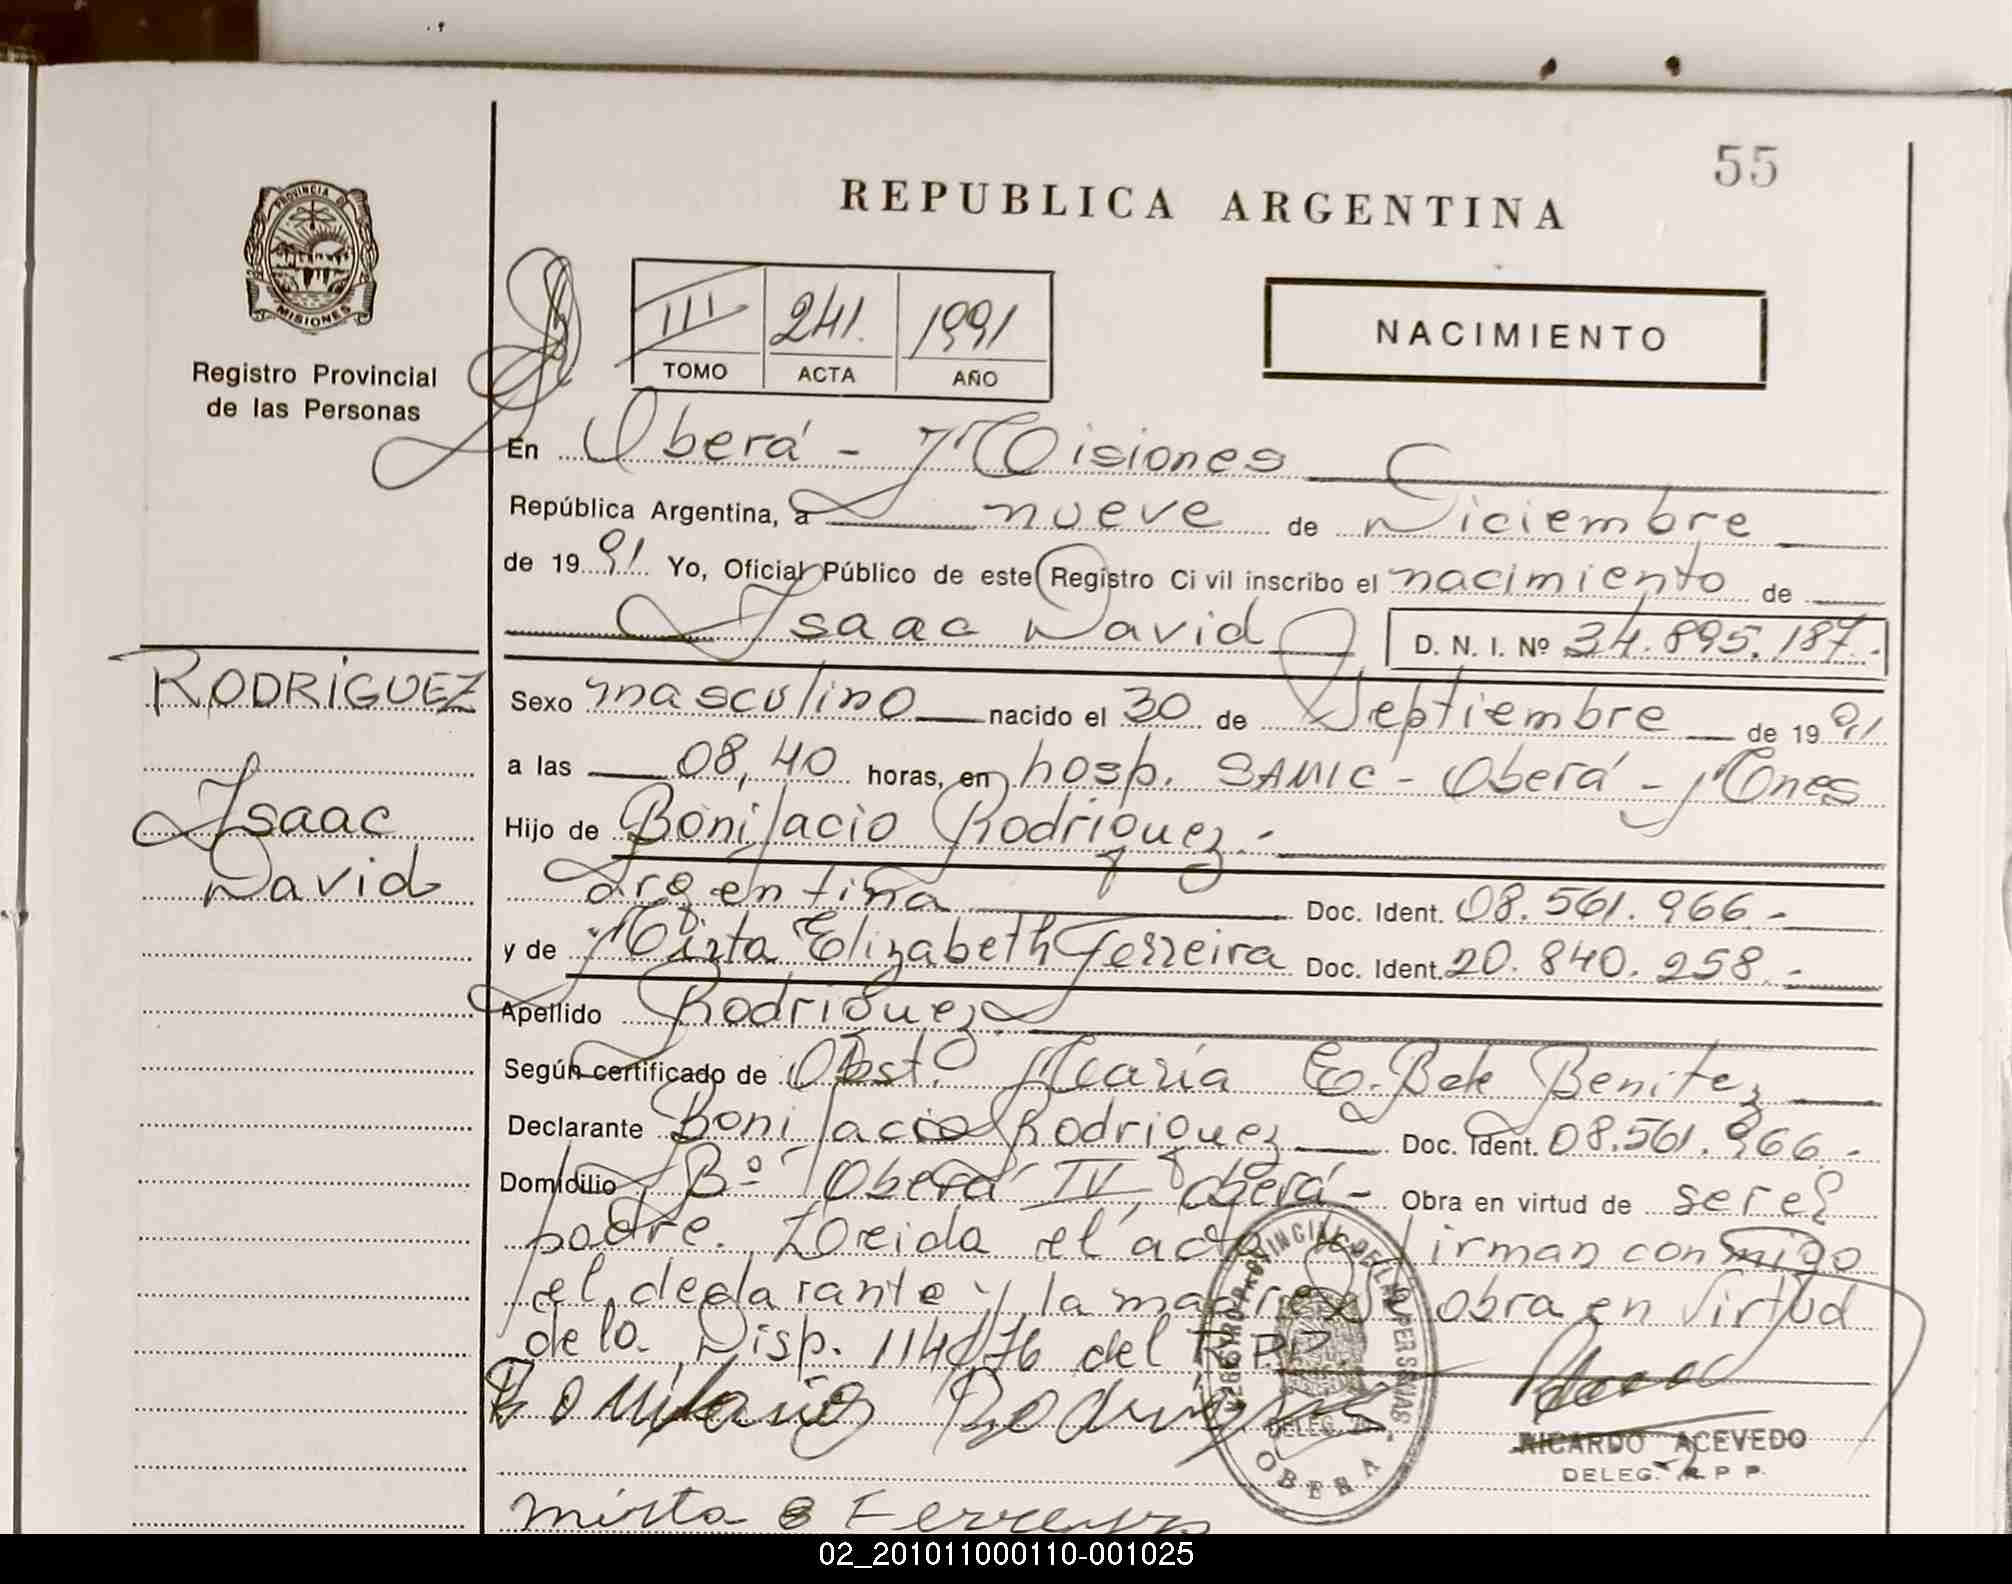 55
REPUBLICA ARGENTINA
PROVINCIA DE
MISIONES
Registro Provincial
de las Personas
III 241. 1991
TOMO ACTA AÑO
NACIMIENTO
En Oberá - Misiones
República Argentina, a nueve de Diciembre
de 1991 Yo, Oficial Público de este Registro Civil inscribo el nacimiento de
Isaac David D. N. I. Nº 34.895.187.-
RODRíGUEZ
Isaac
David
Sexo masculino nacido el 30 de Septiembre de 1991
a las 08,40 horas, en hosp. SAMIC - Oberá - Mnes
Hijo de Bonifacio Rodriguez.-
argentina Doc. Ident. 08.561.966.-
y de Mirta Elizabeth Ferreira Doc. Ident. 20.840.258.-
Apellido Rodriguez
Según certificado de Obst. María E. Bek Benitez
Declarante Bonifacio Rodriguez Doc. Ident. 08.561.966.-
Domicilio Bº Oberá IV, Oberá - Obra en virtud de ser el
padre. Leida el acta la firman conmigo
el declarante y la madre se obra en virtud
de la Disp. 114/76 del R.P.P.
Bonifacio Rodriguez
REGISTRO PROVINCIAL DE LAS PERSONAS
DELEG.
OBERA
RICARDO ACEVEDO
DELEG. R. P P.
Mirta E Ferreyra
02_201011000110-001025